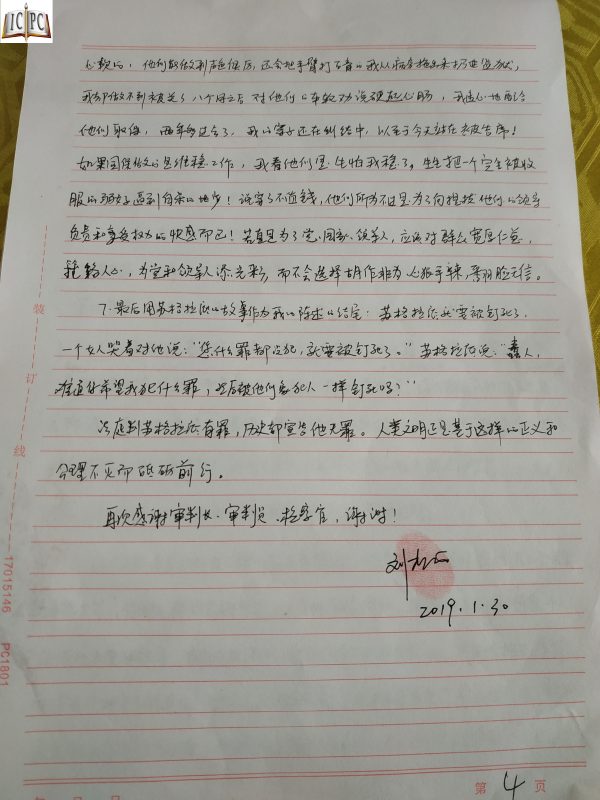 ICPC
心软的，他们能做到声色俱厉，还会把手臂打了石膏的我从病房拖出来扔进监狱，
我却做不到被关了八个月之后对他们 硬起心肠，我违心地配合
他们取保，两年多过去了，我的案子还在纠结中，以至于今天站在去被告席！
如果国保做的是维稳工作，我看他们是生怕我稳了，生生把一个完全被收
服的弱女子逼到自杀的地步！说穿了不值钱，他们所为不过是为了向 他们的领导
负责和享受权力的快感而已！若真是为了党、国家、领导人，应该对群众宽厚仁慈，
笼络人心，为党和领导人添光彩，而不会选择胡作非为心狠手辣、 信。
7.最后用苏格拉底的故事作为我的陈述的结尾：苏格拉底就要被钉死了，
一个女人哭着对他说："您什么罪都没犯，就要被钉死了。"苏格拉底说："蠢人，
难道你希望我犯什么罪，然后被他们象犯人一样钉死吗？"
法庭判苏格拉底有罪，历史却宣告他无罪。人类文明正是基于这样的正义和
合理不灭而砥砺前行。
再次感谢审判长、审判员、检察官，谢谢！
刘
2019.1.30
装
订
线
17015146 PC1801
第 4 页